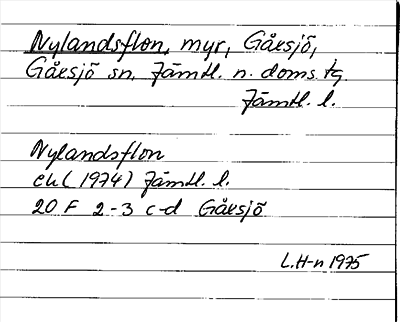 Nylandsflon, myr, Gåxsjö,
Gåxsjö sn, Jämtl. n. doms. tg
Jämtl. l.
Nylandsflon
ek (1974) Jämtl. l.
20 F 2-3 c-d Gåxsjö
L.H-n 1975